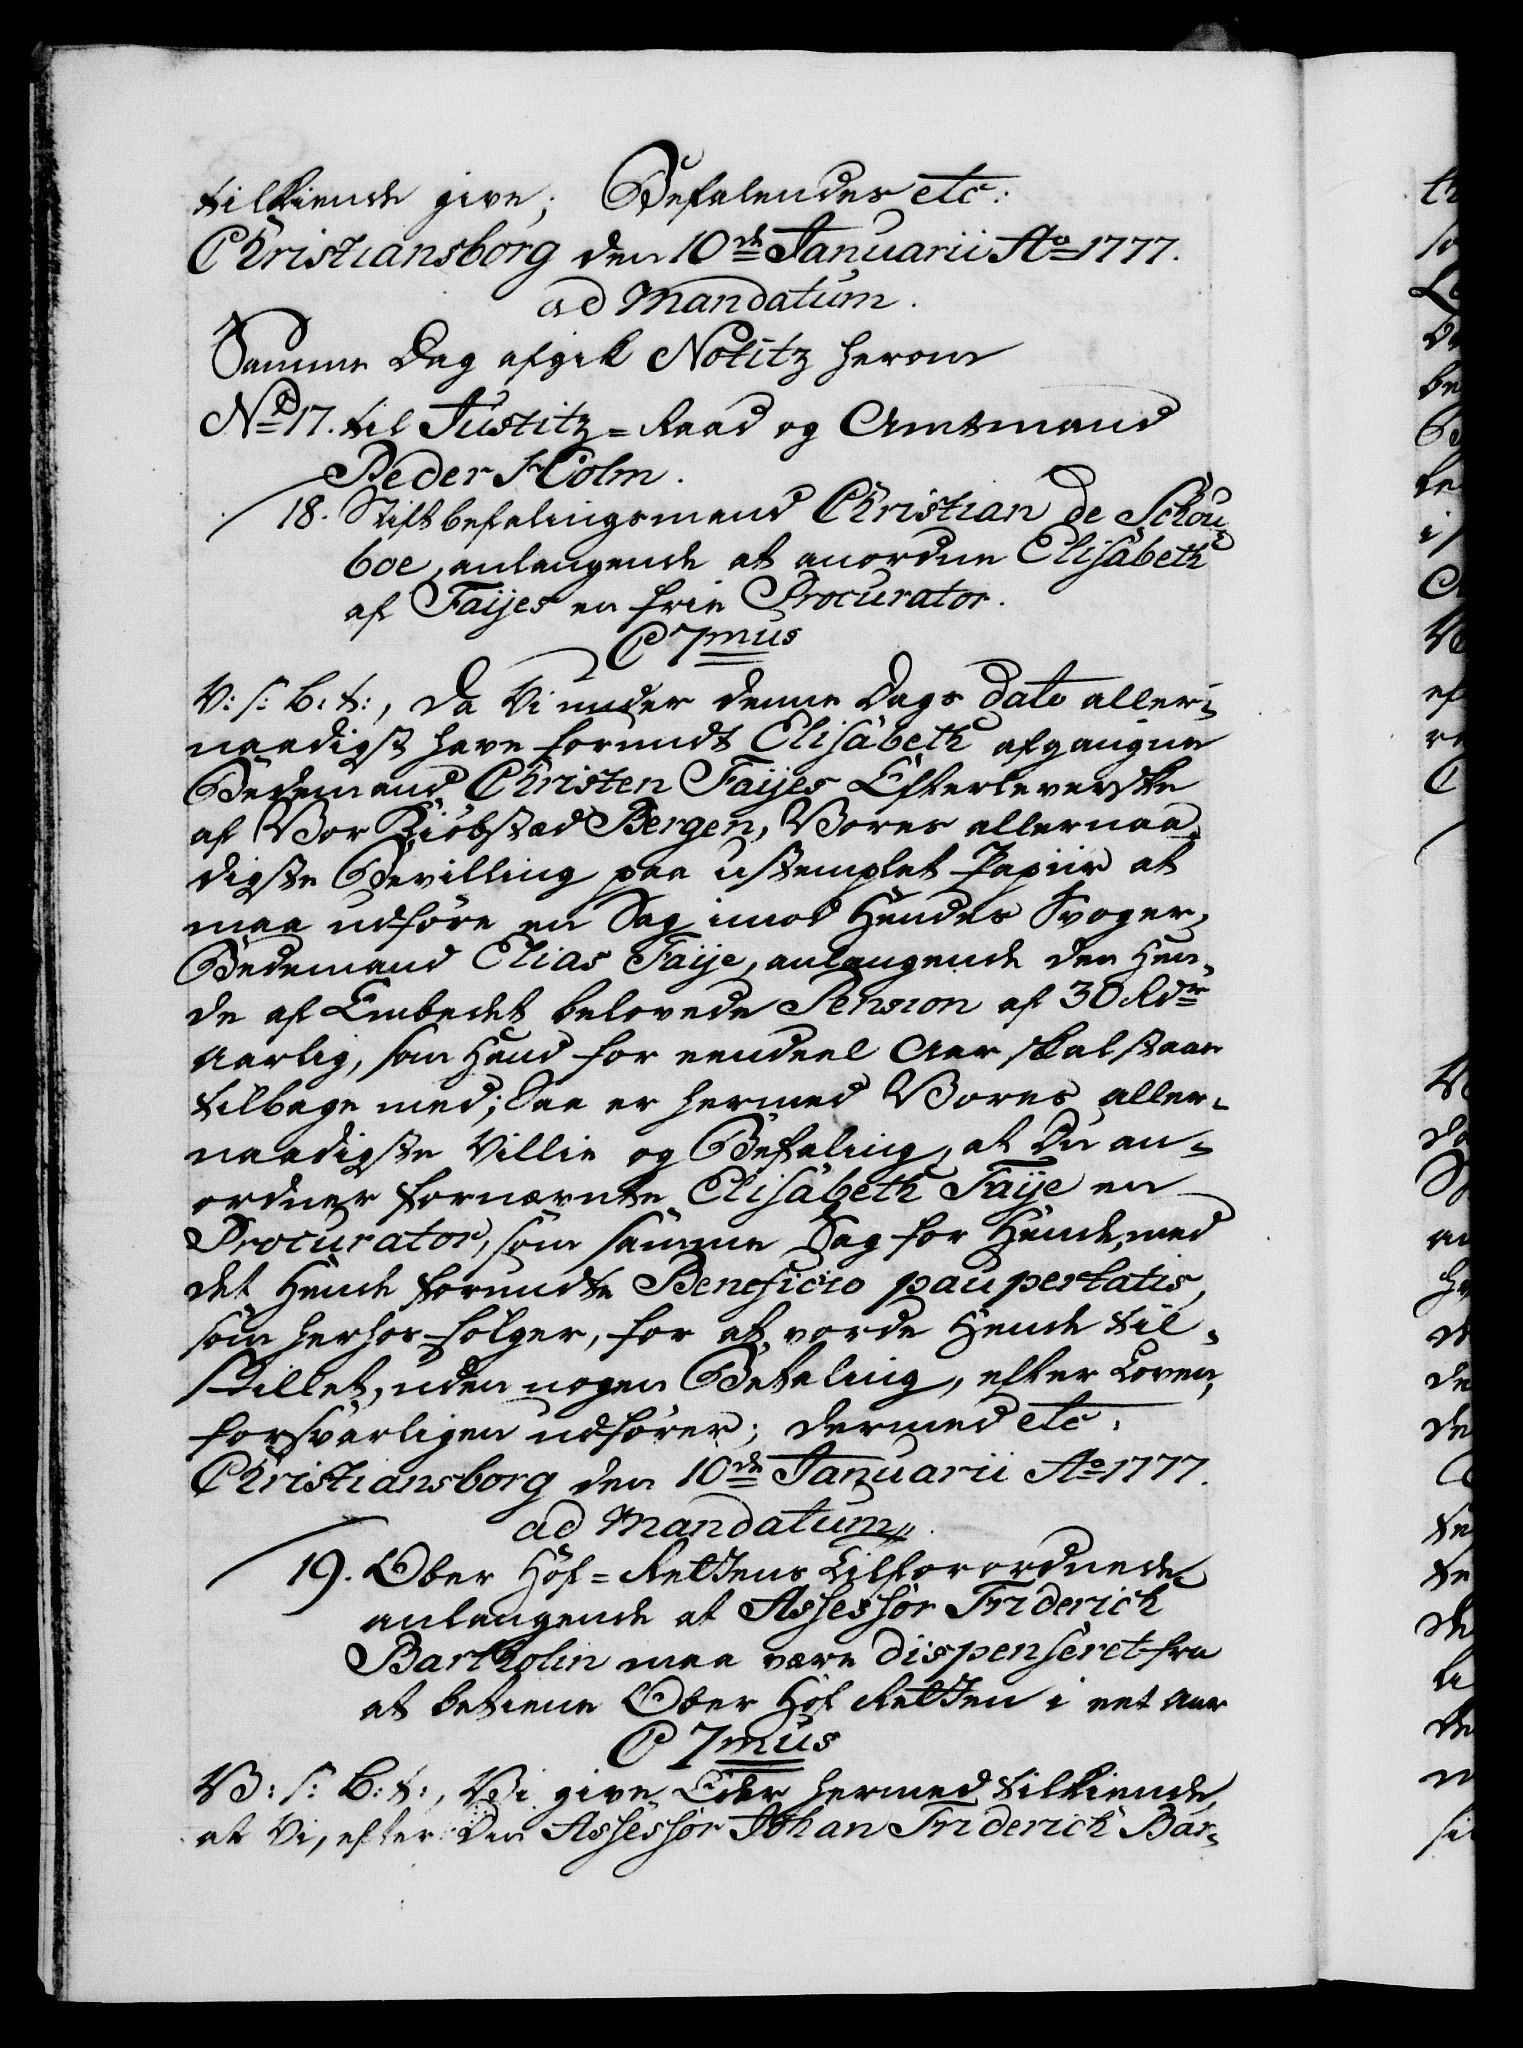 tilkiende give; Befalendes etc:
Christiansborg den 10de Januarii Ao 1777.
ad Mandatum.
Samme Dag afgik Notitz herom
No 17. til Justitz=Raad og Amtmand
Peder Holm.
18. Stiftbefalingsmand Christian de Schou-
boe, anlangende at anordne Elisabeth
af Faijes en frie Procurator.
C 7mus
V: s: b: t:, Da Vi under denne Dags dato aller-
naadigst have forundt Elisabeth afgangne
Bedemand Christen Faijes Efterleverske
af Vor Kiøbstæd Bergen, Vores allernaa-
digste Bevilling paa ustemplet Papiir at
maa udføre en Sag imod Hendes Svoger,
Bedemand Elias Faije, anlangende den Hen-
de af Embedet belovede Pension af 30 Rdr
aarlig, som Hand for eendeel Aar skal staae
tilbage med; Saa er hermed Vores aller-
naadigste Villie og Befaling, at Du an-
ordner fornævnte Elisabeth Faije en
Procurator, som samme Sag for Hende, med
det Hende forundte Beneficio paupertatis,
som herhos følger, for at vorde Hende til-
stillet, uden nogen Betaling, efter Loven,
forsvarligen udfører; dermed etc.
Christiansborg den 10de Januarii Ao 1777.
ad Mandatum.
19. Ober Hof=Rettens Tilforordnede
anlangende at Assessor Friderich
Bartholin maa være dispenseret fra
at betiene Ober Hof Retten i eet Aar
C 7mus
V: s: b: t:, Vi give Eder hermed tilkiende,
at Vi, efter den Assessor Johan Friderich Bar-